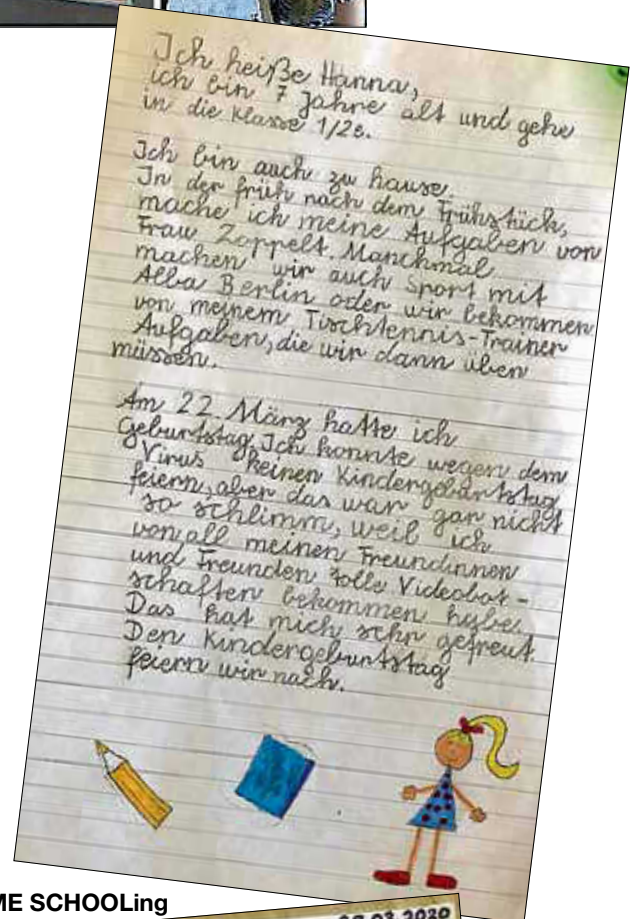 Ich heiße Hanna,
ich bin 7 Jahre alt und gehe
in die Klasse 1/2e.
Ich bin auch zu hause.
In der früh nach dem Frühstück,
mache ich meine Aufgaben von
Frau Zoppelt. Manchmal
machen wir auch Sport mit
Alba Berlin oder wir bekommen
von meinem Tischtennis-Trainer
Aufgaben, die wir dann üben
müssen.
Am 22. März hatte ich
Geburtstag. Ich konnte wegen dem
Virus keinen Kindergeburtstag
feiern, aber das war gar nicht
so schlimm, weil ich
von all meinen Freundinnen
und Freunden tolle Videobot-
schaften bekommen habe.
Das hat mich sehr gefreut.
Den Kindergeburtstag
feiern wir nach.
ME SCHOOLing
03.2020